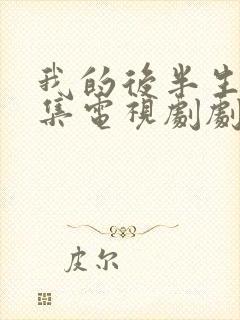 我的後半生
集電視劇劇
皮尔